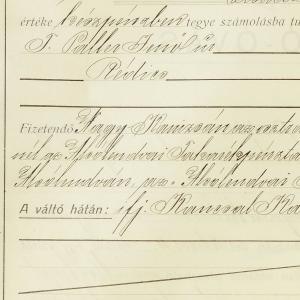 értéke készpénzben tegye számolásba
T. Paller Jenő úr
Rédics
Fizetendő Nagy Kanizsán, az osztrák
nél ga Alsólendvai Takarékpénztár
Alsólendván, az Alsólendvai
A váltó hátán: ifj. Kanczal Ka